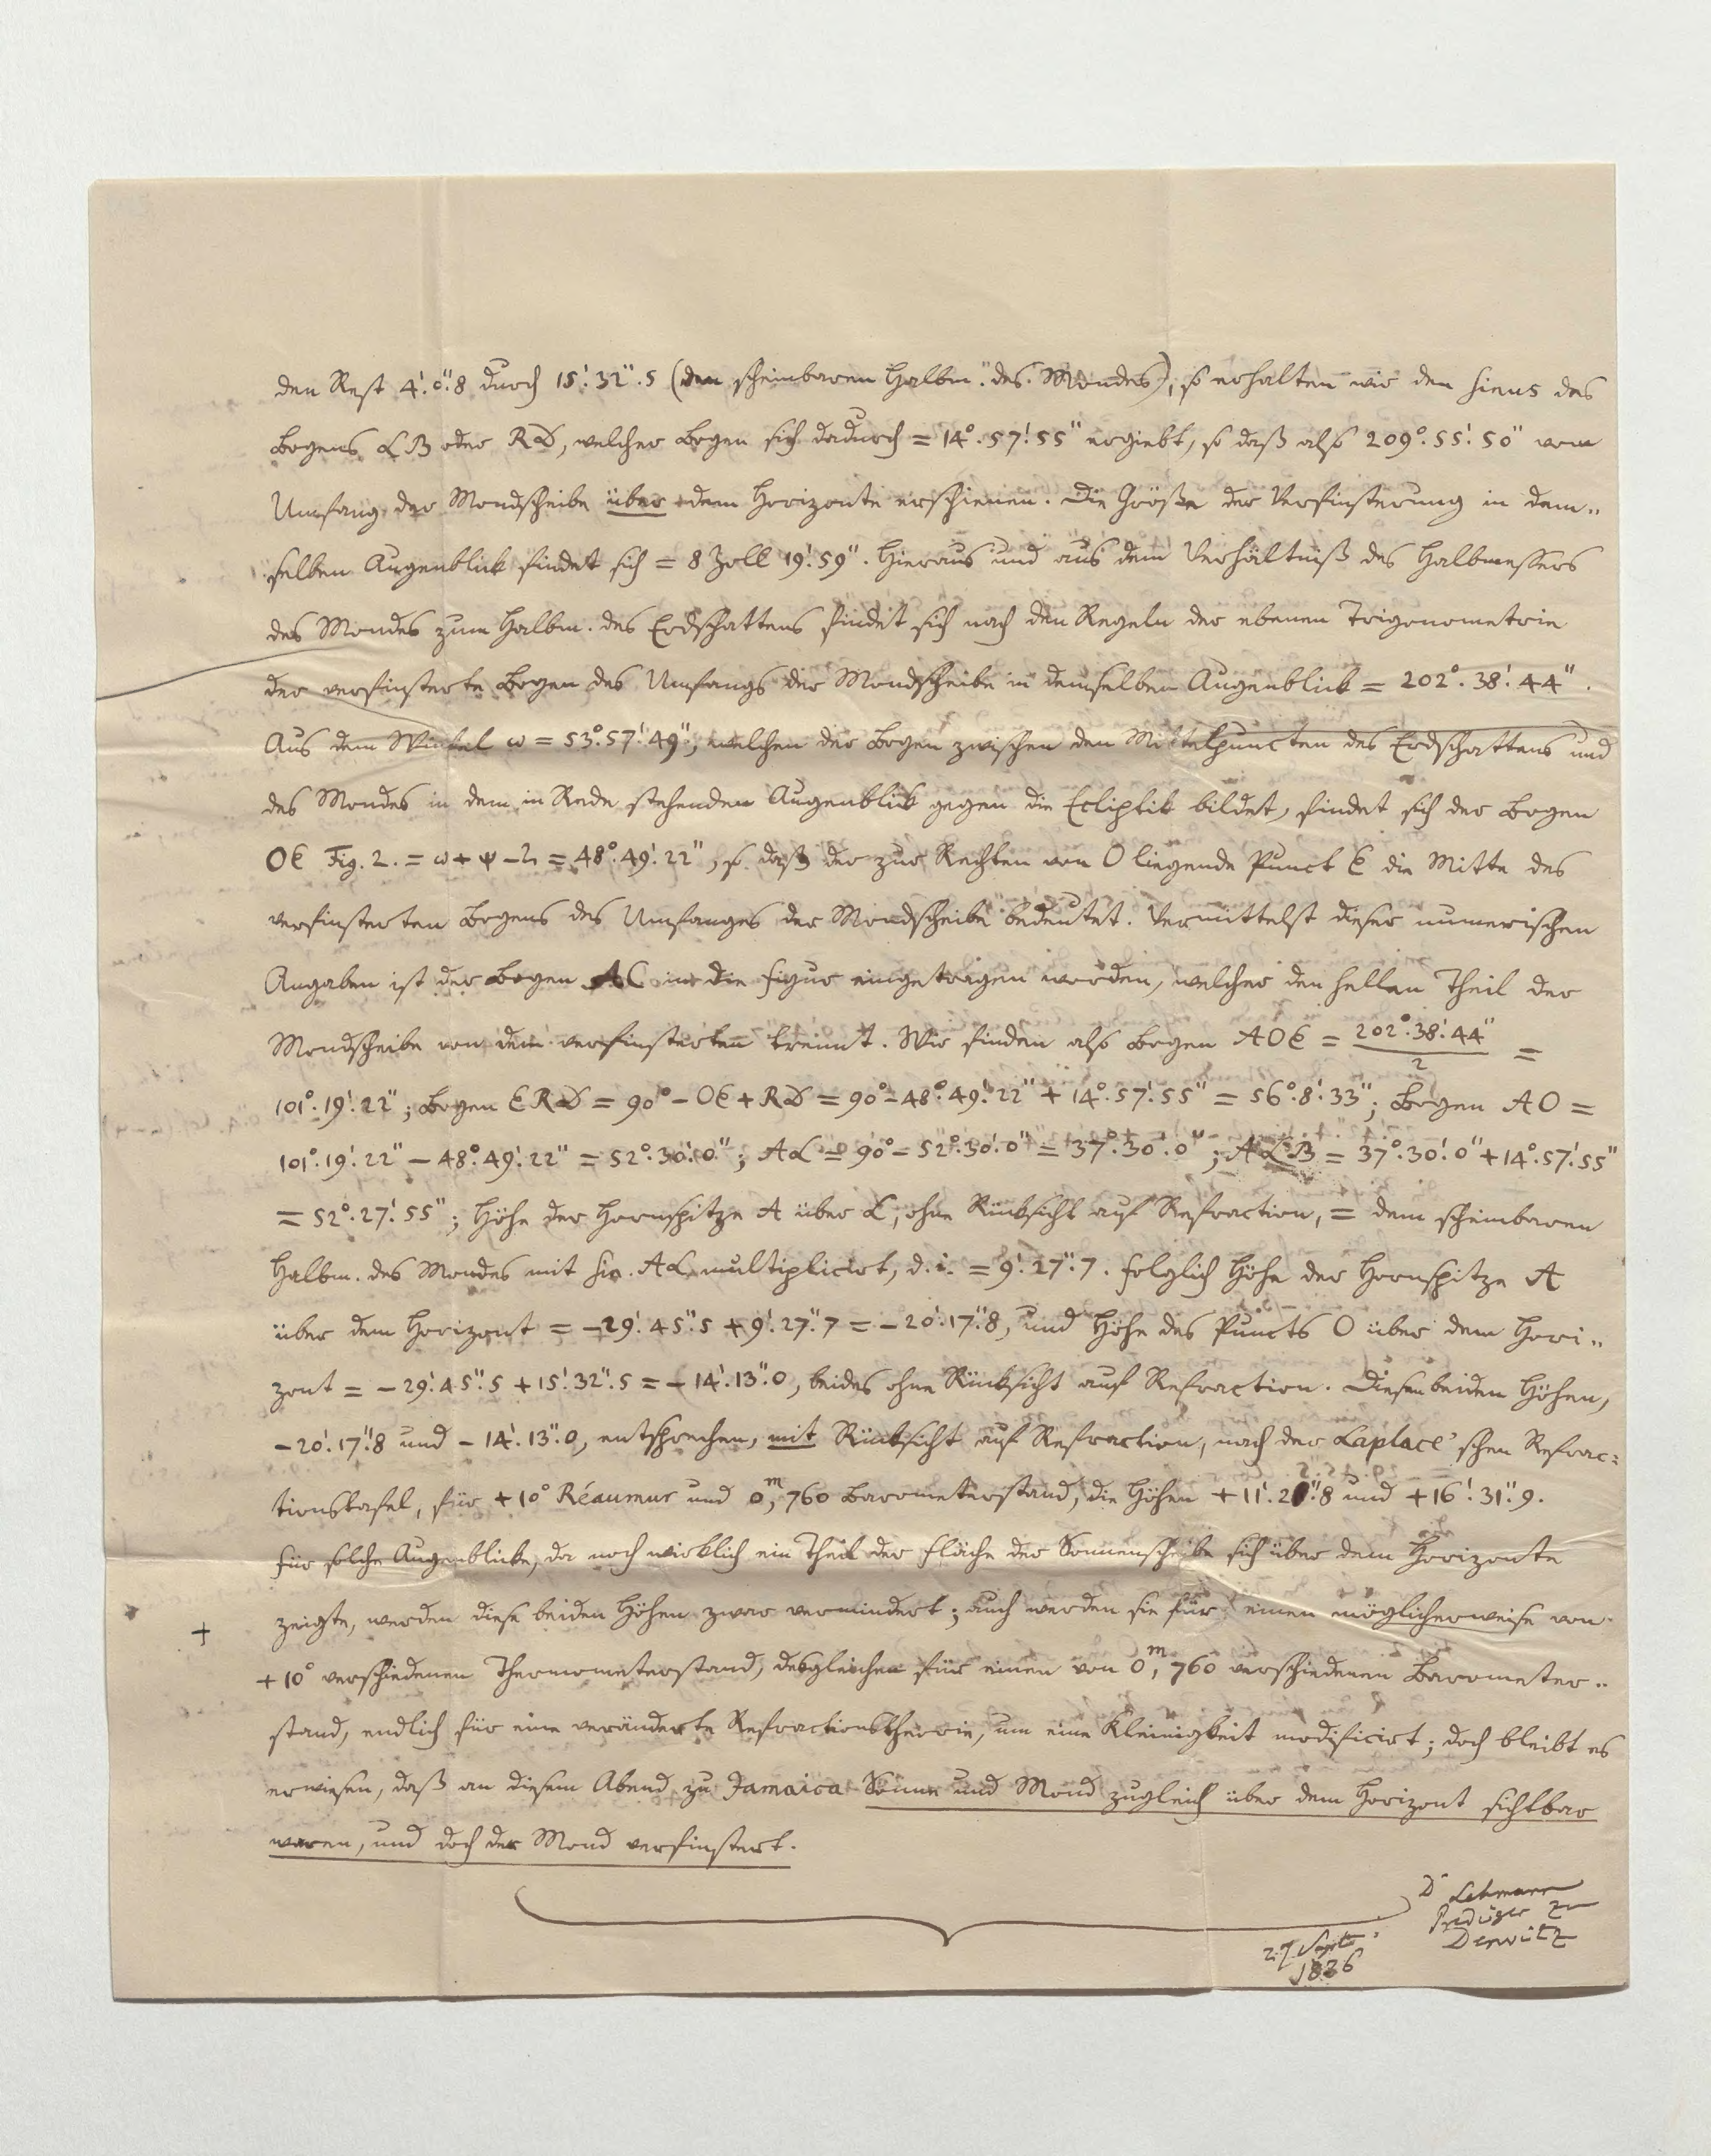 den Rest 4'.0".8 durch 15'.32".5 (den scheinbaren Halbm. des Mondes), so erhalten wir den Sinus des
Bogens LB oder RD, welcher Bogen sich dadurch = 14°.57'.55" ergiebt, so daß also 209°.55'.50" vom
Umfang der Mondscheibe über dem Horizonte erschienen. Die Größe der Verfinsterung in dem„
selben Augenblick findet sich = 8 Zoll 19'.59". Hieraus und aus dem Verhältniß des Halbmessers
des Mondes zum Halbm. des Erdschattens findet sich nach den Regeln der ebenen Trigonometrie
der verfinsterte Bogen des Umfangs der Mondscheibe in demselben Augenblick = 202°.38'.44".
Aus dem Winkel ω = 53°.57'.49", welchen der Bogen zwischen den Mittelpuncten des Erdschattens und
des Mondes in dem in Rede stehenden Augenblick gegen die Ecliptik bildet, findet sich der Bogen
OE Fig. 2. = ω + ψ - η = 48°.49'.22", so daß der zur Rechten von O liegende Punct E die Mitte des
verfinsterten Bogens des Umfanges der Mondscheibe bedeutet. Vermittelst dieser numerischen
Angaben ist der Bogen AC in die Figur eingetragen worden, welcher den hellen Theil der
Mondscheibe von dem verfinsterten trennt. Wir finden also Bogen AOE = 202°.38'.44"/2 =
101°.19'.22"; Bogen ERD = 90° - OE + RD = 90° - 48°.49'.22" + 14°.57'.55" = 56°.8'.33"; Bogen AO =
101°.19'.22" - 48°.49'.22" = 52°.30'.0"; AL = 90° - 52°.30'.0" = 37°.30'.0"; ALB = 37°.30'.0" + 14°.57'.55"
= 52°.27'.55"; Höhe der Hornspitze A über L, ohne Rücksicht auf Refraction, = dem scheinbaren
Halbm. des Mondes mit Sin. AL multiplicirt, d.i. = 9'.27".7. Folglich Höhe der Hornspitze A
über dem Horizont = -29'.45".5 + 9'.27".7 = -20'.17".8, und Höhe des Puncts O über dem Hori„
zont = -29'.45".5 + 15'.32".5 = -14'.13".0, beides ohne Rücksicht auf Refraction. Diesen beiden Höhen,
-20'.17".8 und -14'.13".0, entsprechen, mit Rücksicht auf Refraction, nach der Laplace'schen Refrac=
tionstafel, für +10° Réaumur und 0,m760 Barometerstand, die Höhen +11'.20".8 und +16'.31".9.
Für solche Augenblicke, da noch wirklich ein Theil der Fläche der Sonnenscheibe sich über dem Horizonte
zeigte, werden diese beiden Höhen zwar vermindert; auch werden sie für einen möglicherweise von
+
+10° verschiedenen Thermometerstand, desgleichen für einen von 0,m760 verschiedenen Barometer„
stand, endlich für eine veränderte Refractionstheorie, um eine Kleinigkeit modificirt; doch bleibt es
erwiesen, daß an diesem Abend zu Jamaica Sonne und Mond zugleich über dem Horizont sichtbar
waren, und doch der Mond verfinstert.
Dr Lehmann
Prediger zu
Derwitz
27 Septbr
1836